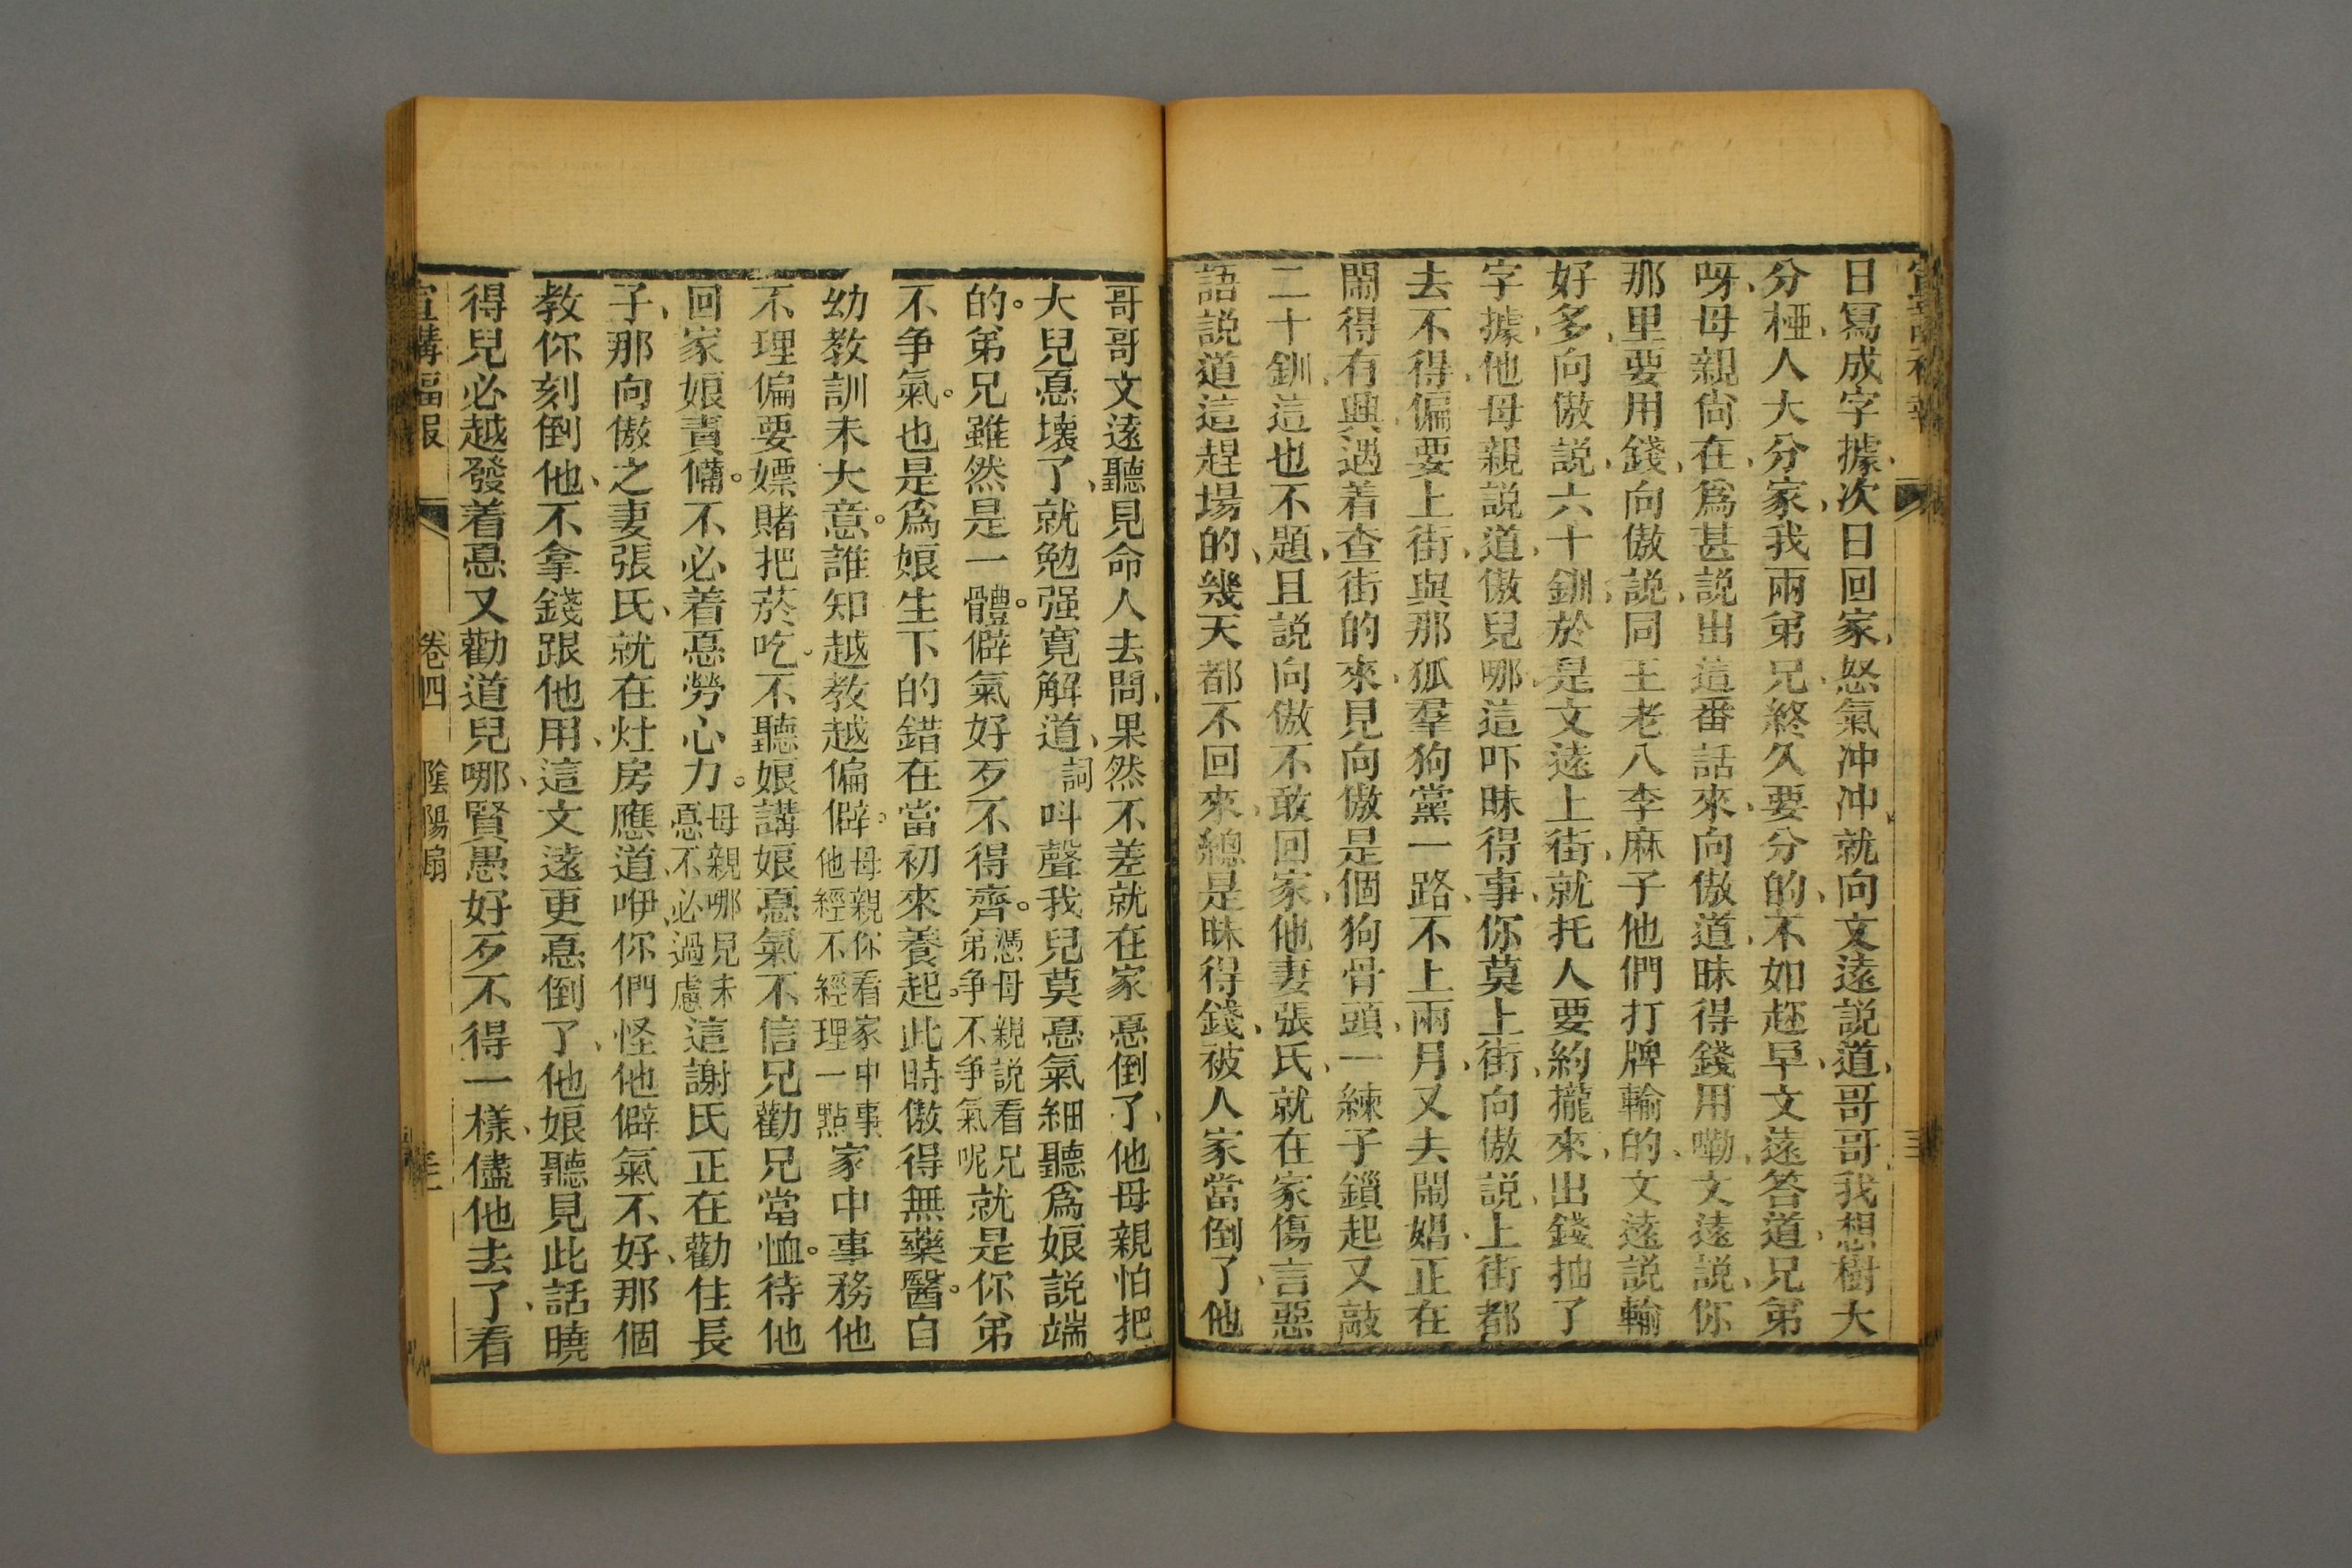 日寫成字據、次日回家、怒氣冲冲、就向文遠說道、哥哥我想樹大
分椏、人大分家、我兩弟兄、終久要分的、不如趂早、文遠答道、兄弟
呀、母親尙在、爲甚說出這番話來、向傲道、昧得錢用嘞、文遠說、你
那里要用錢、向傲說、同王老八李麻子他們打牌輸的、文遠說輸
好多、向傲說、六十釧、於是文遠上街、就托人要約攏來、出錢抽了
字據、他母親說道、傲兒哪、這吓昧得事、你莫上街、向傲說、上街都
去不得、偏要上街、與那狐羣狗黨一路、不上兩月、又去閙娼、正在
閙得有興、遇着查街的來、見向傲是個狗骨頭、一練子鎻起又敲
二十釧、這也不題、且說向傲不敢回家、他妻張氏、就在家傷言惡
語說道這趕場的、幾天都不回來、總是昧得錢、被人家當倒了、他
哥哥文遠聽見命人去問、果然不差就在家惪倒了、他母親怕把
大兒惪壞了、就勉强寬解道、詞 呌聲我兒莫惪氣細聽爲娘說端
的。弟兄雖然是一體。僻氣好歹不得齊。憑母親說看兄弟争不争氣呢就是你弟
不争氣。也是爲娘生下的錯在當初來養起。此時傲得無藥醫。自
幼教訓未大意。誰知越教越偏僻。母親你看家中事他經不經理一點家中事務他
不理偏要嫖賭把菸吃。不聽娘講娘惪氣不信兄勸兄當恤。待他
回家娘責備。不必着惪勞心力。母親哪兒未惪不必過慮這謝氏正在勸住長
子、那向傲之妻張氏、就在灶房應道、咿、你們怪他僻氣不好、那個
教你刻倒他、不拿錢跟他用、這文遠更惪倒了、他娘聽見此話曉
得兒必越發着惪又勸道兒哪、賢愚好歹不得一樣、儘他去了、看
宣講福報 卷四 陰陽扇